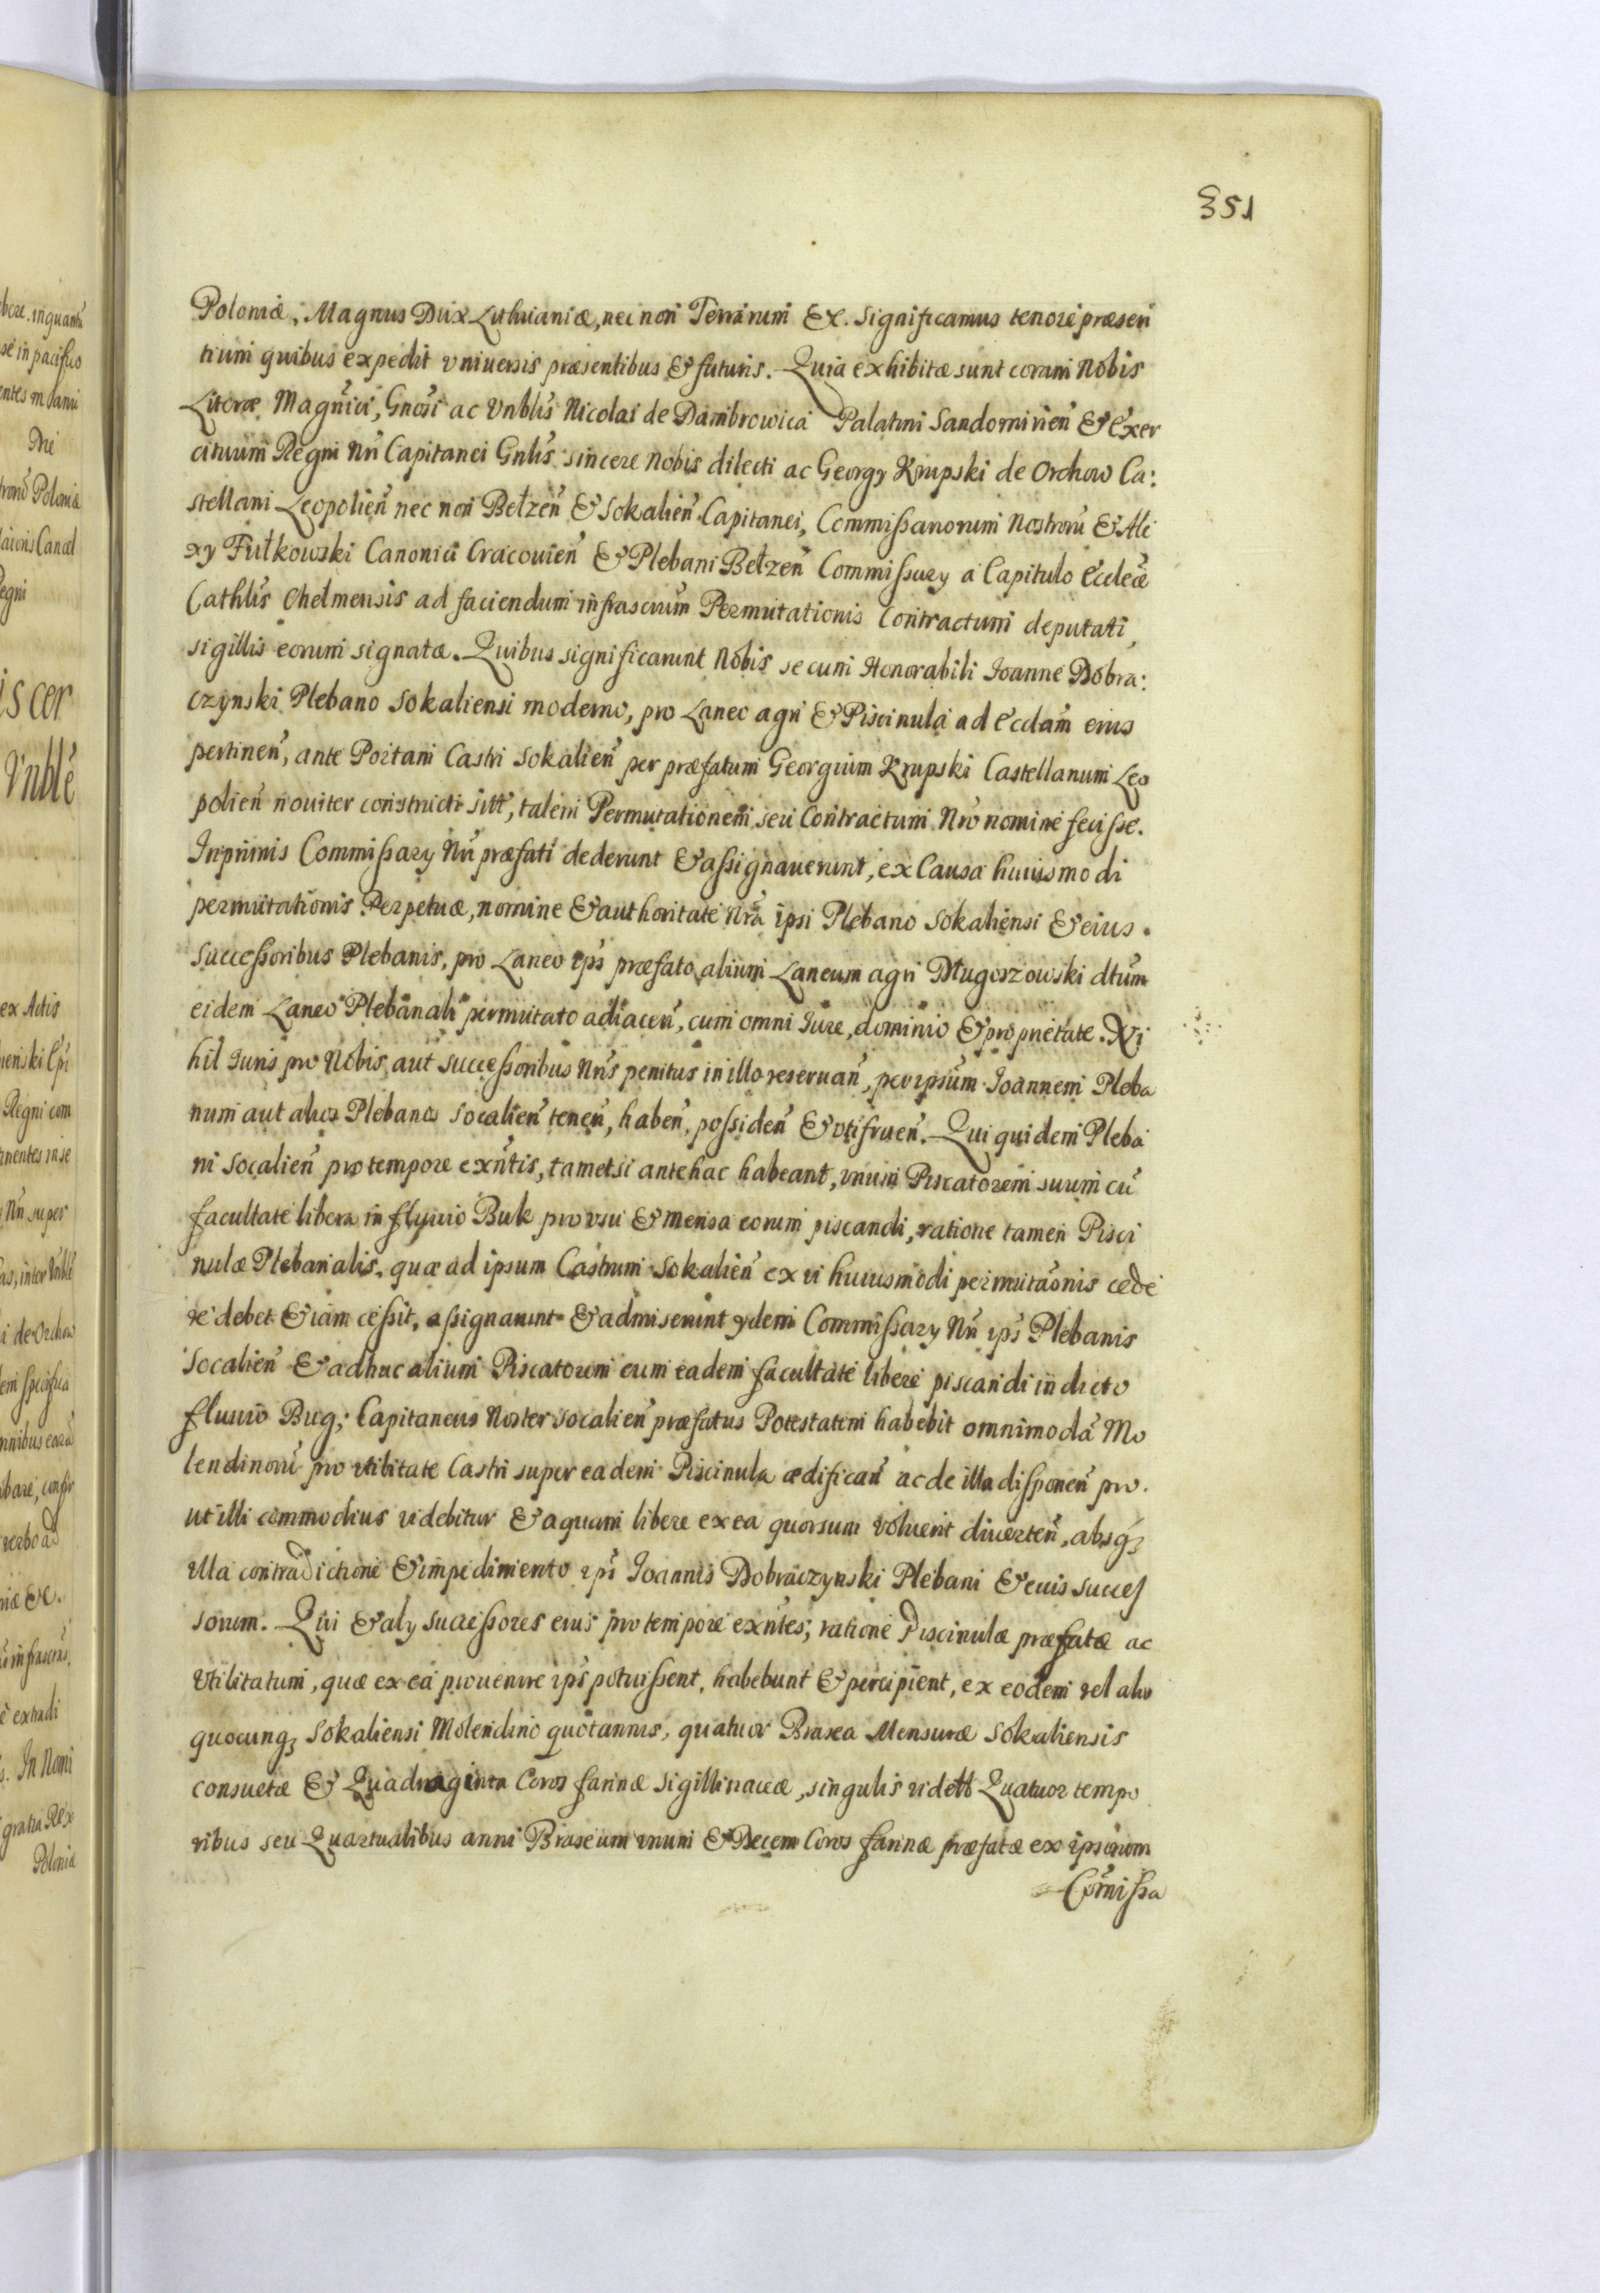 351
Poloniæ, Magnus Dux Lithuaniæ, nec non Terrarum &c. Significamus tenore præsen
tium quibus expedit vniuersis præsentibus & futuris. Quia exhibitæ sunt coram Nobis
Literæ Magnîci, Gnosi ac Vnblis Nicolai de Dambrowica Palatini Sandomirien̄ & Exer
cituum Regni Nri Capitanei Gnlis sincere Nobis dilecti ac Georgy Krupski de Orchow Ca:
stellani Leopolien̄ nec non Bełzen̄ & Sokalien̄ Capitanei, Commissariorum Nostrorū & Ale
xy Futkowski Canonici Cracouien̄ & Plebani Bełzen̄ Commissary a Capitulo Ecclæ
Cathlis Chelmensis ad faciendum infrascrum Permutationis Contractum deputati,
sigillis eorum signatæ. Quibus significarunt Nobis se cum Honorabili Ioanne Dobra:
czynski Plebano Sokaliensi moderno, pro Laneo agri & Piscinula ad Ecclam eius
pertinen̄, ante Portam Castri Sokalien̄ per præfatum Georgium Krupski Castellanum Leo
polien̄ nouiter constructi sitt, talem Permutationem seu Contractum Nro nomine fecisse.
Inprimis Commissary Nri præfati dederunt & assignauerunt, ex Causa huiusmodi
permutationis Perpetuæ, nomine & authoritate Nrâ ipsi Plebano Sokaliensi & eius
Successoribus Plebanis, pro Laneo ips præfato alium Laneum agri Długoszowski dtum
eidem Laneo Plebanali permutato adiacen̄, cum omni Iure, dominio & proprietate. Ni
hil Iuris pro Nobis aut Successoribus Nris penitus in illo reseruan̄, per ipsum Ioannem Pleba
num aut alios Plebanos Socalien̄ tenen̄, haben̄, possiden̄ & vtifruen̄. Qui quidem Pleba
ni Socalien̄ pro tempore exn̄tis, tametsi antehac habeant, vnum Piscatorem suum cū
facultate libera in fluuio Buk pro vsu & mensa eorum piscandi, ratione tamen Pisci
nulæ Plebanalis, quæ ad ipsum Castrum Sokalien̄ ex vi huiusmodi permutaōnis cede
re debet & iam cessit, assignarunt & admiserunt ydem Commissary Nri ips Plebanis
Socalien̄ & adhuc alium Piscatorem cum eadem facultate libere piscandi in dicto
fluuio Bug; Capitaneus Noster Socalien̄ præfatus Potestatem habebit omnimodā Mo
lendinorū pro vtilitate Castri super eadem Piscinula ædifican̄ ac de illa disponen̄ pro
ut illi commodius videbitur & aquam libere ex ea quorsum voluerit diuerten̄, absq;
vlla contradictione & impedimento ips Ioannis Dobraczynski Plebani & euis succes
sorum. Qui & aly successores eius pro tempore exn̄tes, ratione Piscinulæ præfatæ ac
Vtilitatum, quæ ex ea prouenire ips potuissent, habebunt & percipient, ex eodem vel alio
quocunq; Sokaliensi Molendino quotannis, quatuor Brasea Mensuræ Sokaliensis
consuetæ & Quadraginta Coros farinæ sigillinaceæ, singulis vidett Quatuor tempo
ribus seu Quartualibus anni Braseum vnum & Decem Coros farinæ præfatæ ex ipsorum
Com̄issa